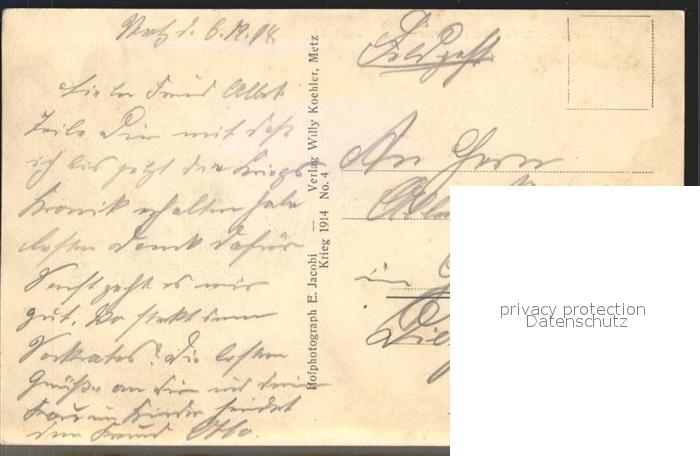 Metz d. 6.12.14
Lieber Freund Albert
Teile Dir mit daß
ich bis jetzt die Kriegs
Kronik erhalten habe
besten Dank dafür
Sonst geht es mir
gut. Wo stekt denn
Sokrates? Die besten
Grüße an Dir und deine
Frau u Kinder sendet
dein Freund Otto.
Hofphotograph E. Jacobi — Verlag Willy Koehler, Metz
Krieg 1914 No. 4
Feldpost
An Herrn
in
privacy protection
Datenschutz